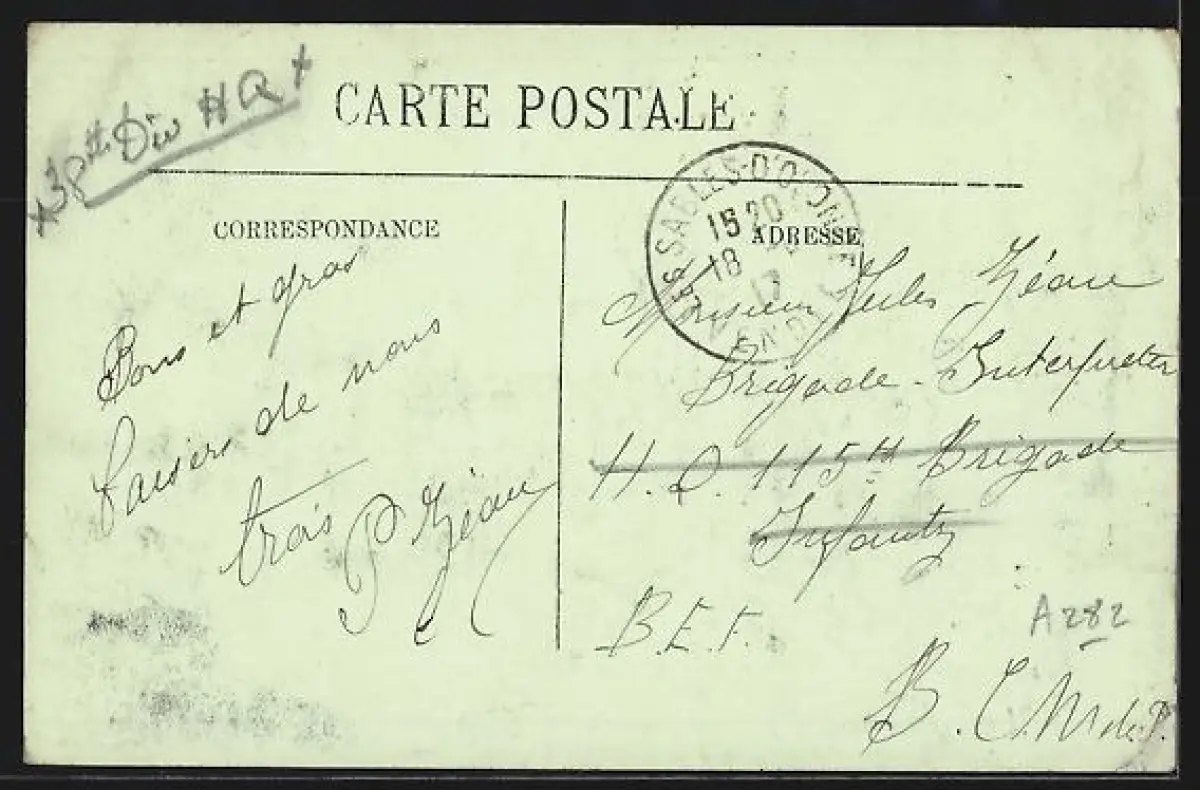 38th Div HQ
CARTE POSTALE
CORRESPONDANCE
ADRESSE
LES SABLES-D'OLONNE
15 20
18
17
VENDÉE
Bons et gros
baisers de nous
trois
Monsieur Jules
Brigade - Interpreter
H.Q. 115th Brigade
Infantry
B.E.F.
A282
B.